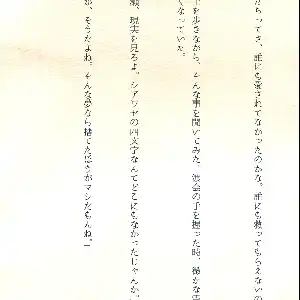 だらってさ、誰にも愛されてなかったのかな。誰にも救ってもらえないの
を歩きながら、そんな事を聞いてみた。渡会の手を握った時、微かな
くなっていた。
瀬、現実を見ろよ。シアワセの四文字なんてどこにもなかったじゃんか。
が、そうだよね。そんな夢なら捨てたほうがマシだもんね。」